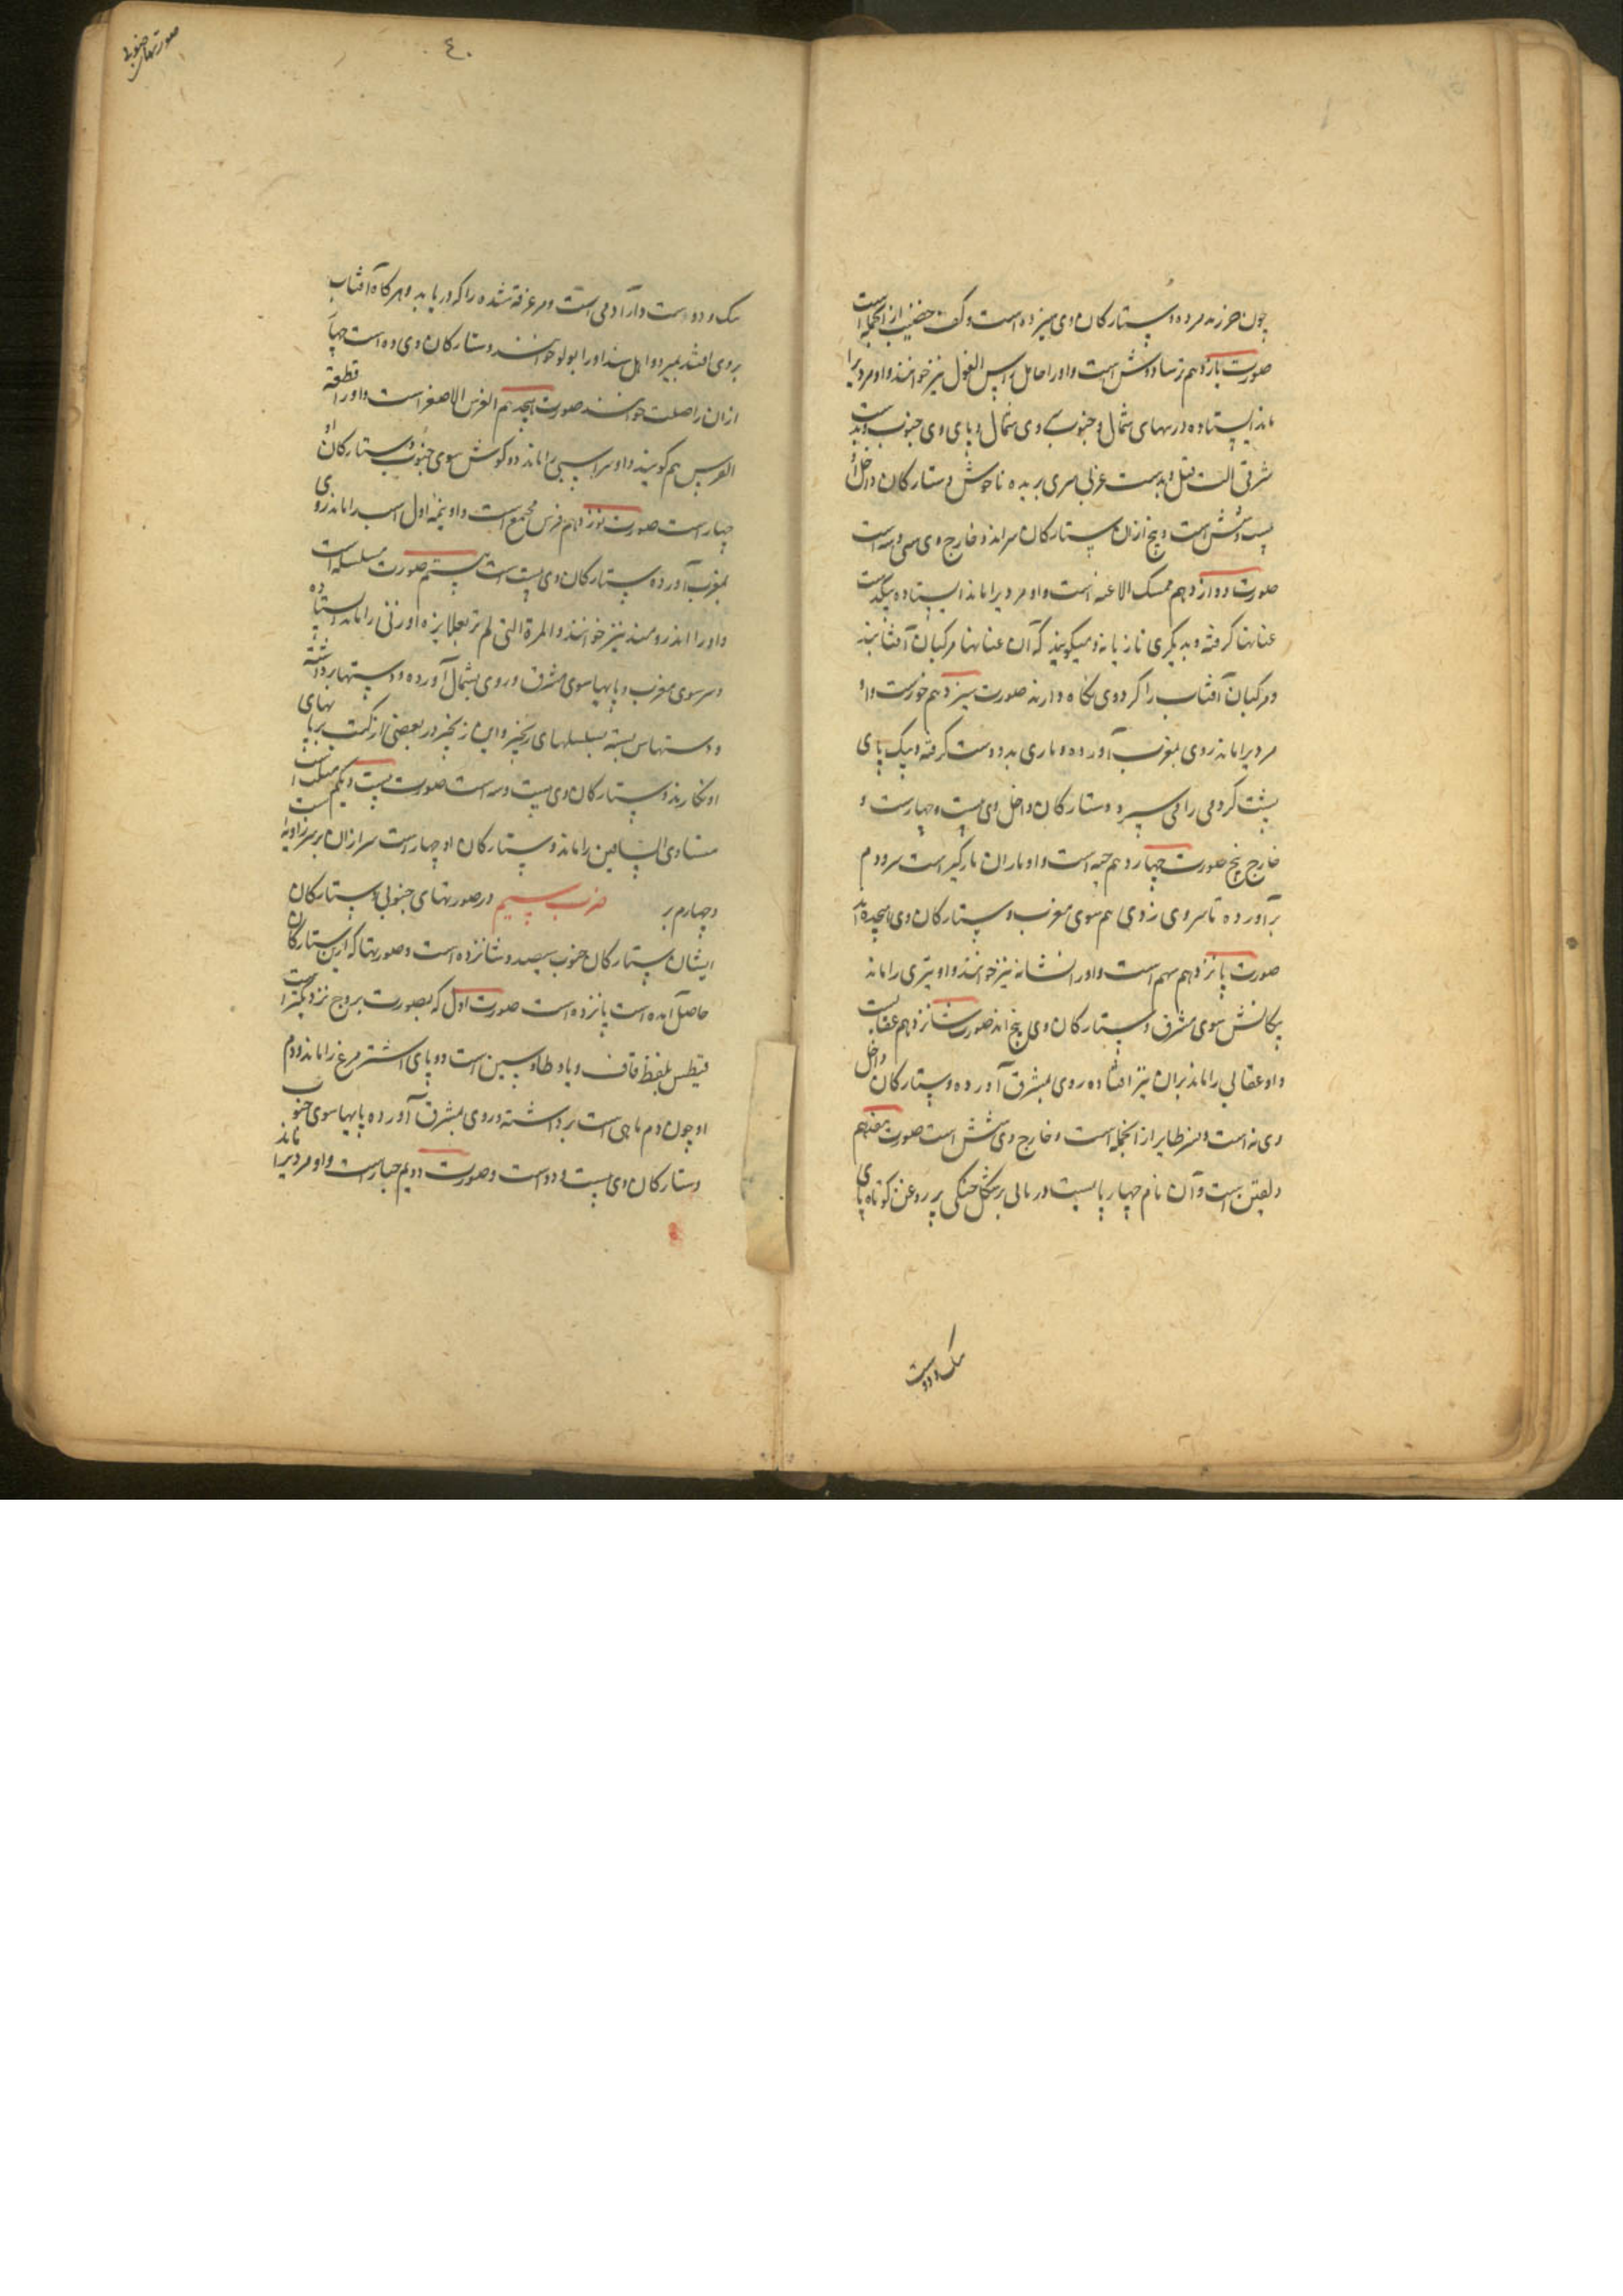 چون خرزنه مرده و ستارکان وی سیزده است و کف خضیب از انجمله است
صورت یازدهم برساوش است و او را حامل راس الغول نیز خوانند و او مردیرا
ماند ایستاده در میان شمال و جنوب سر وی شمال و پای وی جنوب و بدست
شرقی الت قتل و بدست غربی سری بریده ناخوش و ستارکان داخل او
بیست و شش است و پنج ازان ستارکان سراند و خارج وی سی و سه است
صورت دوازدهم ممسک الاعنه است و او مردیرا ماند ایستاده بیکدست
عنانها کرفته و بدیکری تازیانه و میکویند که آن عنانها مرکبان آفتابند
و مرکبان آفتاب را کرد وی نکاه دارند صورت سیزدهم حواست و او
مردیرا ماند روی بمغرب آورده و ماری بدو دست کرفته و بیک پای
پشت کژدمی را می سپرد و ستارکان داخل وی بیست و چهارست و
خارج پنج صورت چهاردهم حیه است و او ماران مارکیر است سر و دم
برآورده تا سر وی زدی هم سوی مغرب و ستارکان وی هیجده اند
صورت پانزدهم سهم است و او را نشانه نیز خوانند و او تیری را ماند
پیکانش سوی مشرق و ستارکان وی پنج اند صورت شانزدهم عقابست
و او عقابی را ماند بران تیر افتاده روی بمشرق آورده و ستارکان داخل
وی نه است و نسر طایر از انجمله است و خارج وی شش است صورت هفدهم
دلفین است و آن نام چهار پایست دریائی بر شکل خیکی پر روغن کوتاه پای
سک و دوست
۴۰
صورتهای جنوبی
سک و دوست دار آدمی است و مر غرقه شده را که دریابد و هر کاه آفتاب
بر وی افتد بمیرد و اهل سند او را بولو خوانند و ستارکان وی ده است چهار
ازان را صلیب خوانند صورت هیجدهم الفرس الاصغر است و او را قطعة
الفرس هم کویند و او سر اسپی را ماند دو کوش سوی جنوب و ستارکان او
چهار است صورت نوزدهم فرس مجمع است و او نیمه اول اسب را ماند روی
بمغرب آورده ستارکان وی بیست است بیستم صورت مسلسله است
و او را اندرومید نیز خوانند و المرة التی لم تر بعلا نیز و او زنی را ماند ایستاده
و سر سوی مغرب و پایها سوی مشرق و روی بشمال آورده و دستها برداشته
و دستهاش بسته بسلسلهای زنجیر و این زنجیر در بعضی از کتب بر پایهای
او نکارند و ستارکان وی بیست و سه است صورت بیست و یکم مثلث است
متساوی الساقین را ماند و ستارکان او چهار است سه ازان بر سه زاویه است
و چهارم بر ضرب سیم در صورتهای جنوبی و ستارکان
ایشان ستارکان جنوب سیصد و شانزده است و صورتها که ازین ستارکان
حاصل آمده است پانزده است صورت اول که بصورت بروج نزدیکتر است
قیطس بلفظ قاف و یا و طا و سین است دو پای اشتر مرغ را ماند و دم
او چون دم ماهی است برداشته و روی بمشرق آورده پایها سوی جنوب
و ستارکان وی بیست و دو است و صورت دویم جبار است و او مردیرا ماند